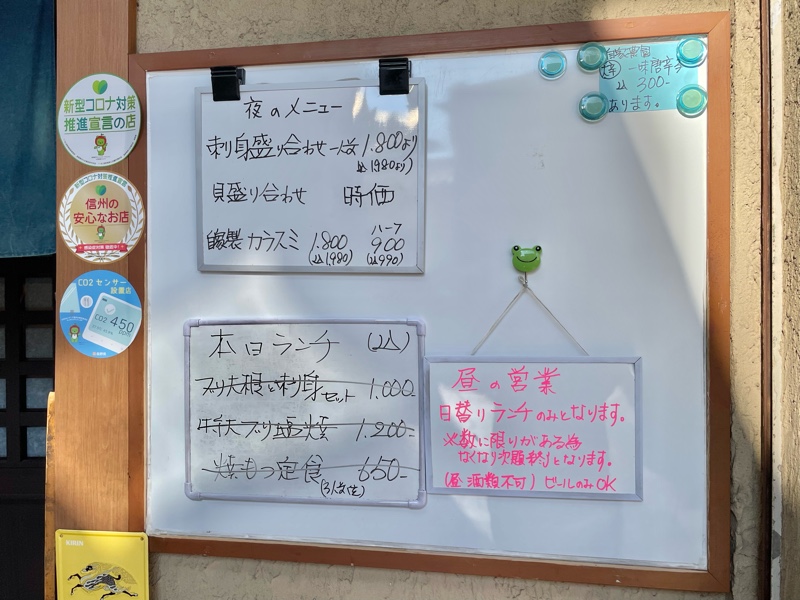 新型コロナ対策
推進宣言の店
新型コロナ対策推進宣言
信州の
安心なお店
CO2センサー
設置店
CO2 450
KIRIN
夜のメニュー
刺身盛り合わせ 一人前 1.800より
(込1980より)
貝盛り合わせ 時価
自家製カラスミ 1.800 ハーフ 900
(込1,980) (込990)
自家栽培
一味唐辛子
込 300-
あります。
本日ランチ (込)
ブリ大根と刺身セット 1.000-
ブリ塩焼 1.200-
焼もつ定食 650-
昼の営業
日替りランチのみとなります。
※数に限りがある為
なくなり次第終りとなります。
(昼 酒類不可) ビールのみOK